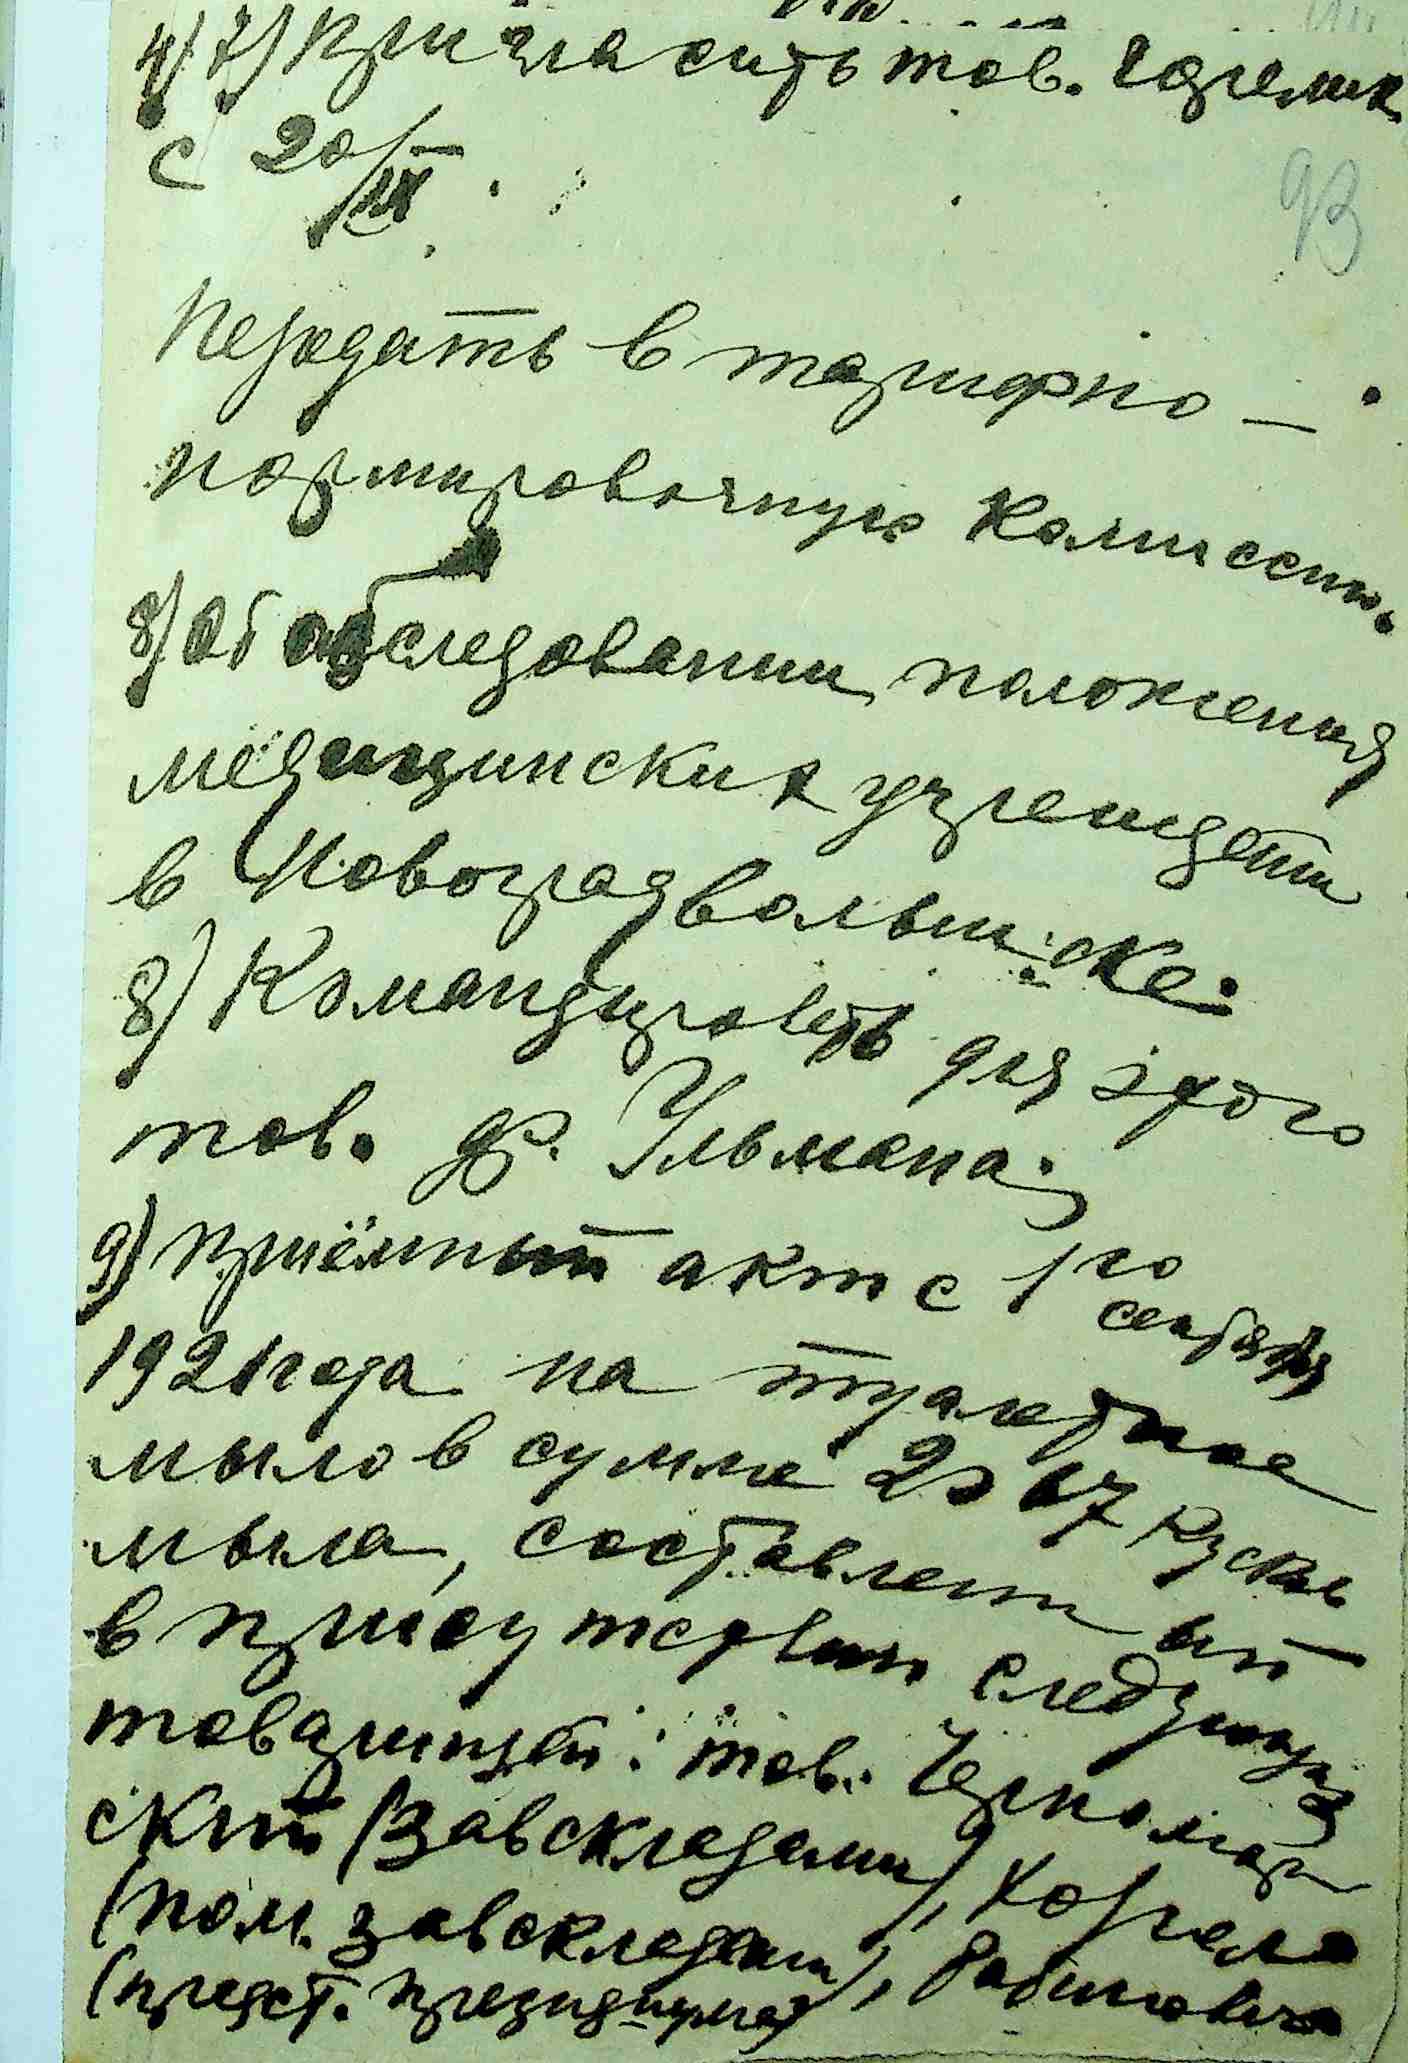 4) 7) Пригласить тов. Горелик
с 20/IX.
93
Передать в тарифно-
нормировочную комиссию.
8) Об обследовании положения
медицинских учреждений
в Новоградвольнске.
8) Командировать для этого
тов. др. Ульмана.
9) Приёмный акт с 1го
сентября
1921 года на туалетное
мыло в сумме 2067 кусков
мыла, составленный
в присутствии следующих
товарищей: тов. Черномор-
ский (Завскладами),
(пом. завскладами), Рабиновича
(предст. президиума)